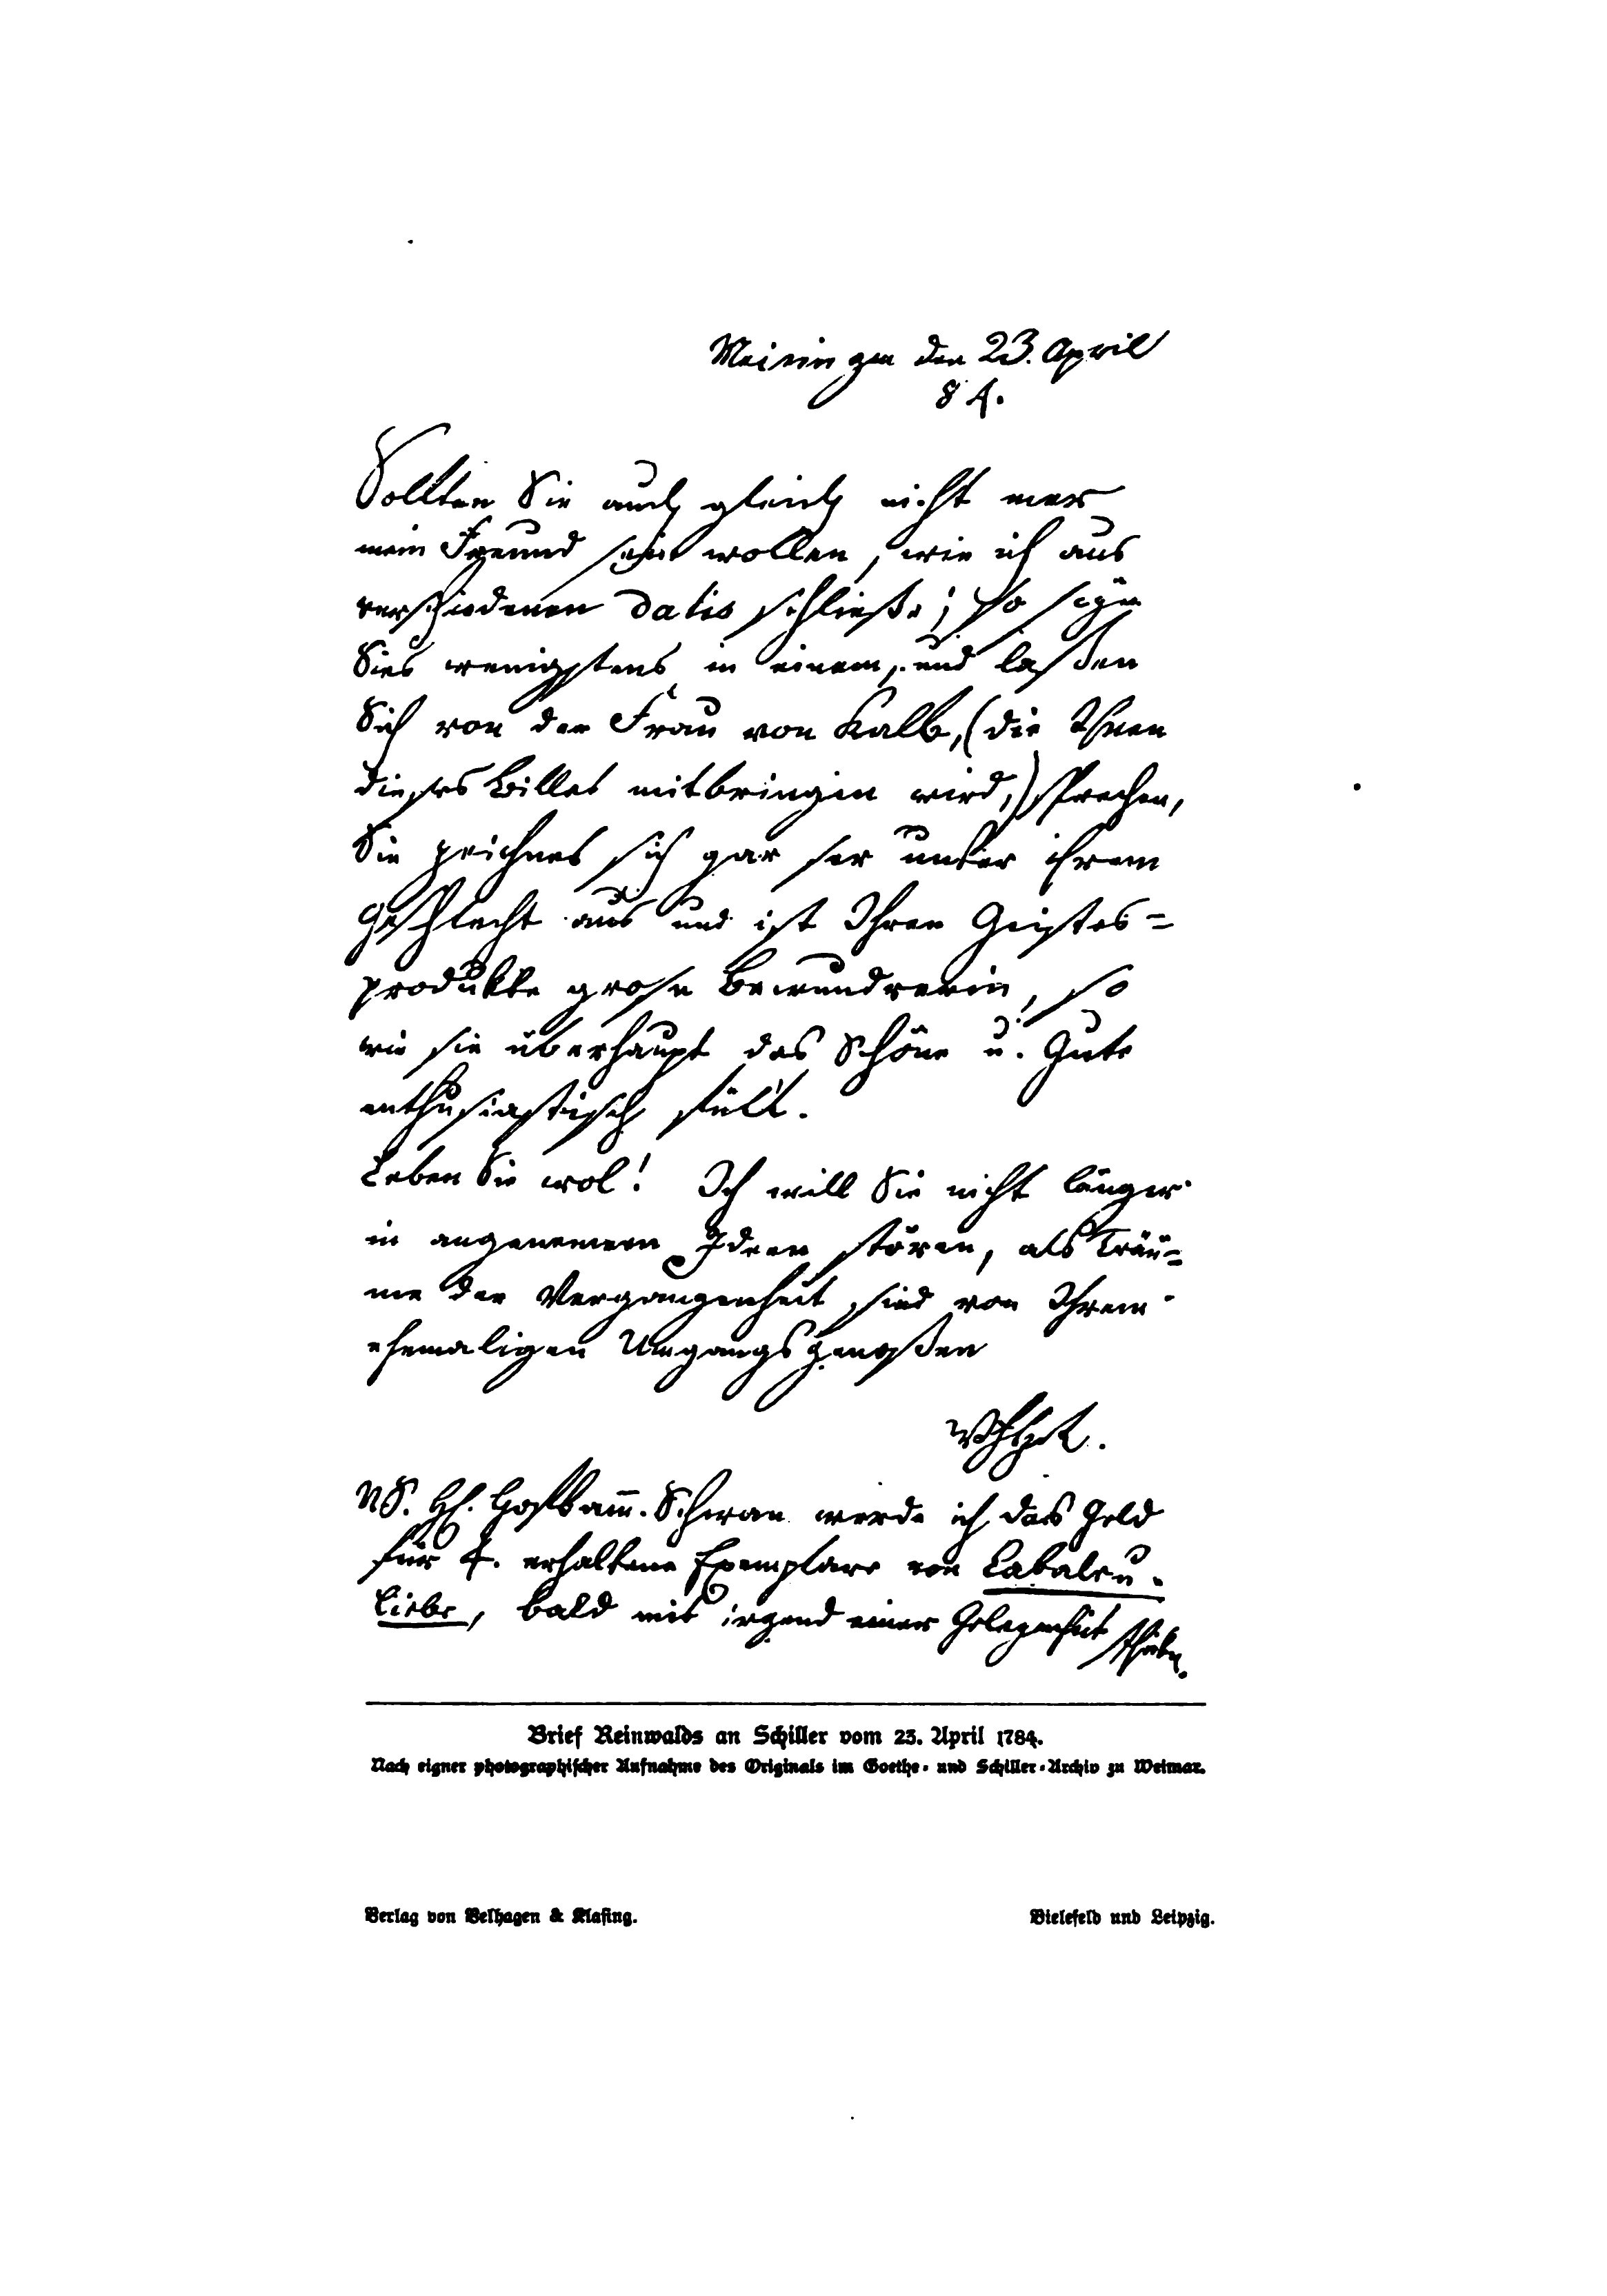 Meiningen den 23. April
84.
Sollten Sie auch gleich nicht mer
mein Freund sein wollen, wie ich aus
verschiedenen datis schließe; so seyn
Sies wenigstens in einem, und laßen
Sich von der Frau von Kalb, (die Ihnen
dieses Billet mitbringen wird,) sprechen,
Sie zeichnet sich gar ser unter ihrem
Geschlecht aus und ist Ihrer Geistes=
produkte grose Bewundrerin, so
wie sie überhaupt das Schöne u. Gute
enthusiastisch fült.
Leben Sie wol! Ich will Sie nicht länger
in angenemern Ideen stören, als Träu=
me der Vergangenheit sind von Ihrem
ehemaligen Umgangsgenoßen
NS. Hofkamm. Schwan werde ich das Geld
für 4. erhaltene Exemplare von Cabale u.
Liebe, bald mit irgend einer Gelegenheit
Brief Reinwalds an Schiller vom 23. April 1784.
Nach eigner photographischer Aufnahme des Originals im Goethe- und Schiller-Archiv zu Weimar.
Verlag von Velhagen & Klasing.
Bielefeld und Leipzig.